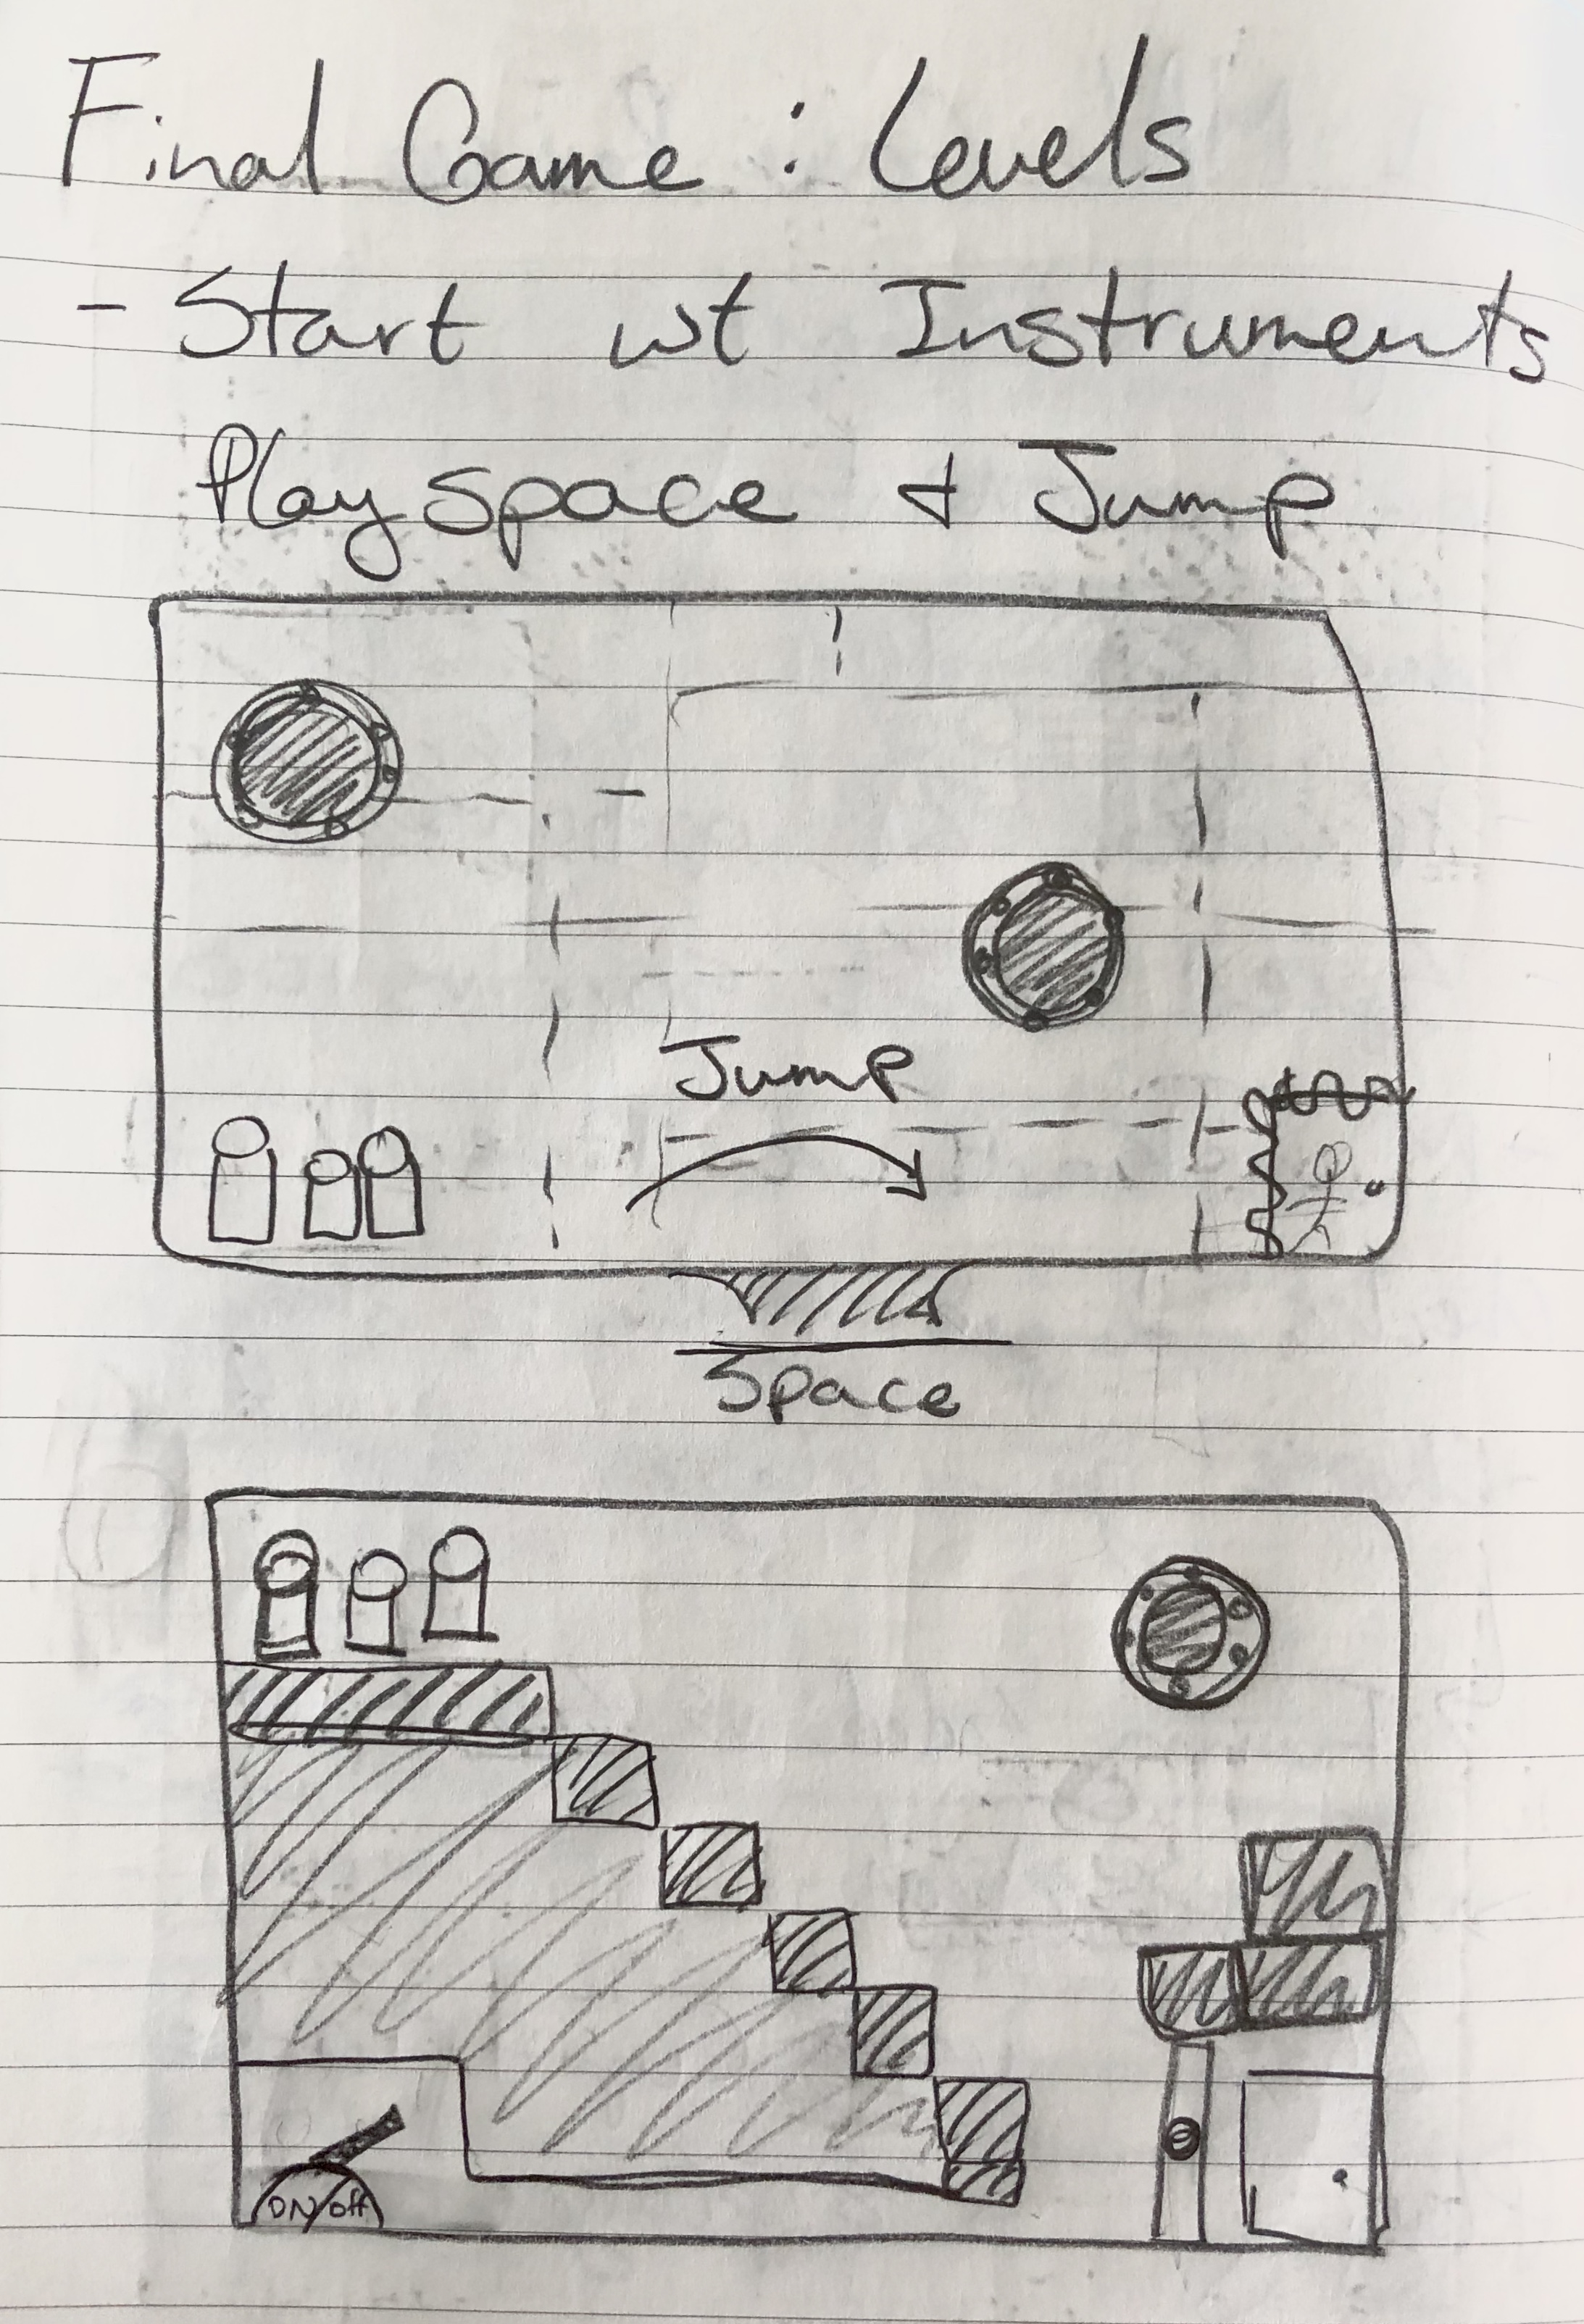 Final Game : Levels
- Start wt Instruments
Play space + Jump
Jump
Space
ON/off